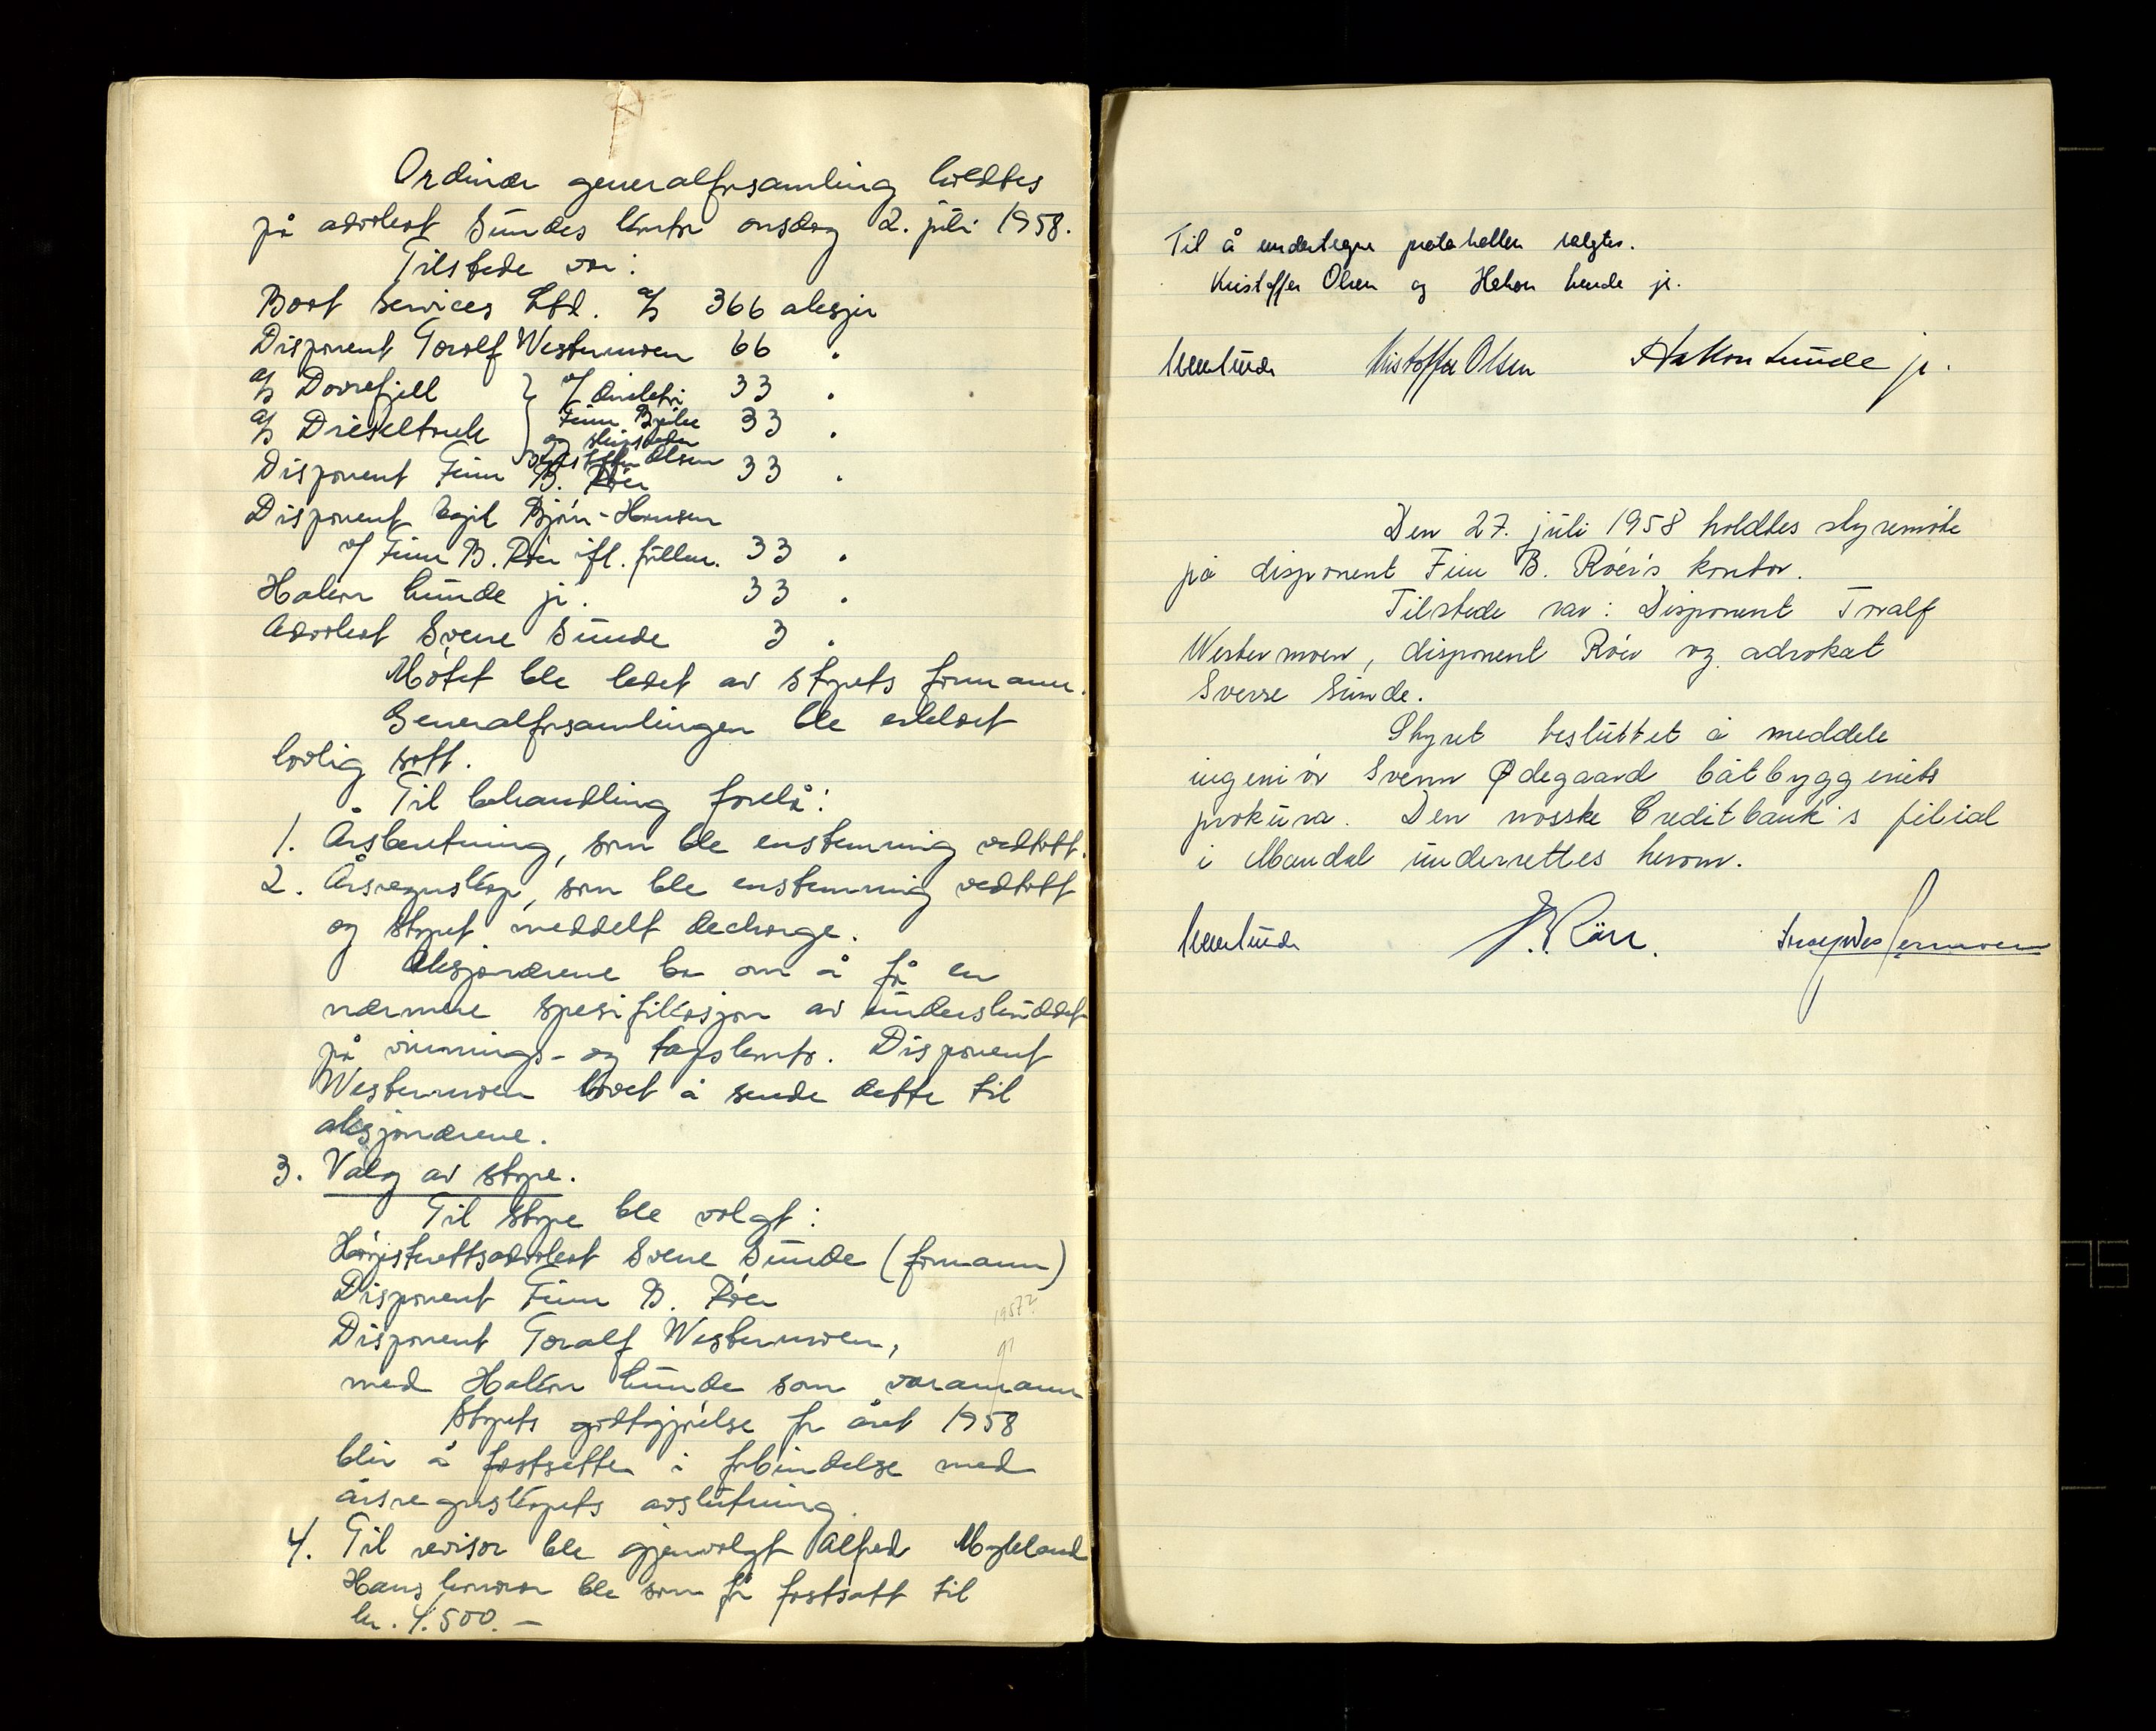 Ordinær generalforsamling holdtes
på advokat Sundes kontor onsdag 2. juli 1958.
Tilstede var:
Boat Services Ltd. A/S 366 aksjer
Disponent Toralf Westermoen 66 "
A/S Dovrefjell } v/ direktør 33 "
A/S Dieseltank Finn og skipsreder 33 "
Kristoffer Olsen
Disponent Finn B. Röer 33 "
Disponent Egil Bjørn-Hansen
v/ Finn B. Röer ifl. fullm. 33 "
Hakon Lunde jr. 33 "
Advokat Sverre Sunde 3 "
Møtet ble ledet av styrets formann.
Generalforsamlingen ble erklært
lovlig satt.
Til behandling forelå:
1. Årsberetning, som ble enstemmig vedtatt.
2. Årsregnskap, som ble enstemmig vedtatt
og styret meddelt decharge.
Aksjonærene ba om å få en
nærmere spesifikasjon av underskuddet
på vinnings- og tapskonto. Disponent
Westermoen lovet å sende dette til
aksjonærene.
3. Valg av styre.
Til styre ble valgt:
Høyesterettsadvokat Sverre Sunde (formann)
Disponent Finn B. Röer
1957?
Disponent Toralf Westermoen,
med Hakon Lunde som varamann
Styrets godtgjørelse for året 1958
blir å fastsette i forbindelse med
årsregnskapets avslutning.
4. Til revisor ble gjenvalgt Alfred Mykland
Hans honorar ble som før fastsatt til
kr. 4.500.-
Til å undertegne protokollen valgtes.
Kristoffer Olsen og Hakon Lunde jr.
Sverre Sunde Kristoffer Olsen Hakon Lunde jr.
Den 27. juli 1958 holdtes styremøte
på disponent Finn B. Röer's kontor.
Tilstede var: Disponent Toralf
Westermoen, disponent Röer og advokat
Sverre Sunde.
Styret besluttet å meddele
ingeniør Svenn Ødegaard båtbyggeriets
prokura. Den norske Creditbank's filial
i Mandal underrettes herom.
Sverre Sunde F. B. Röer. Toralf Westermoen